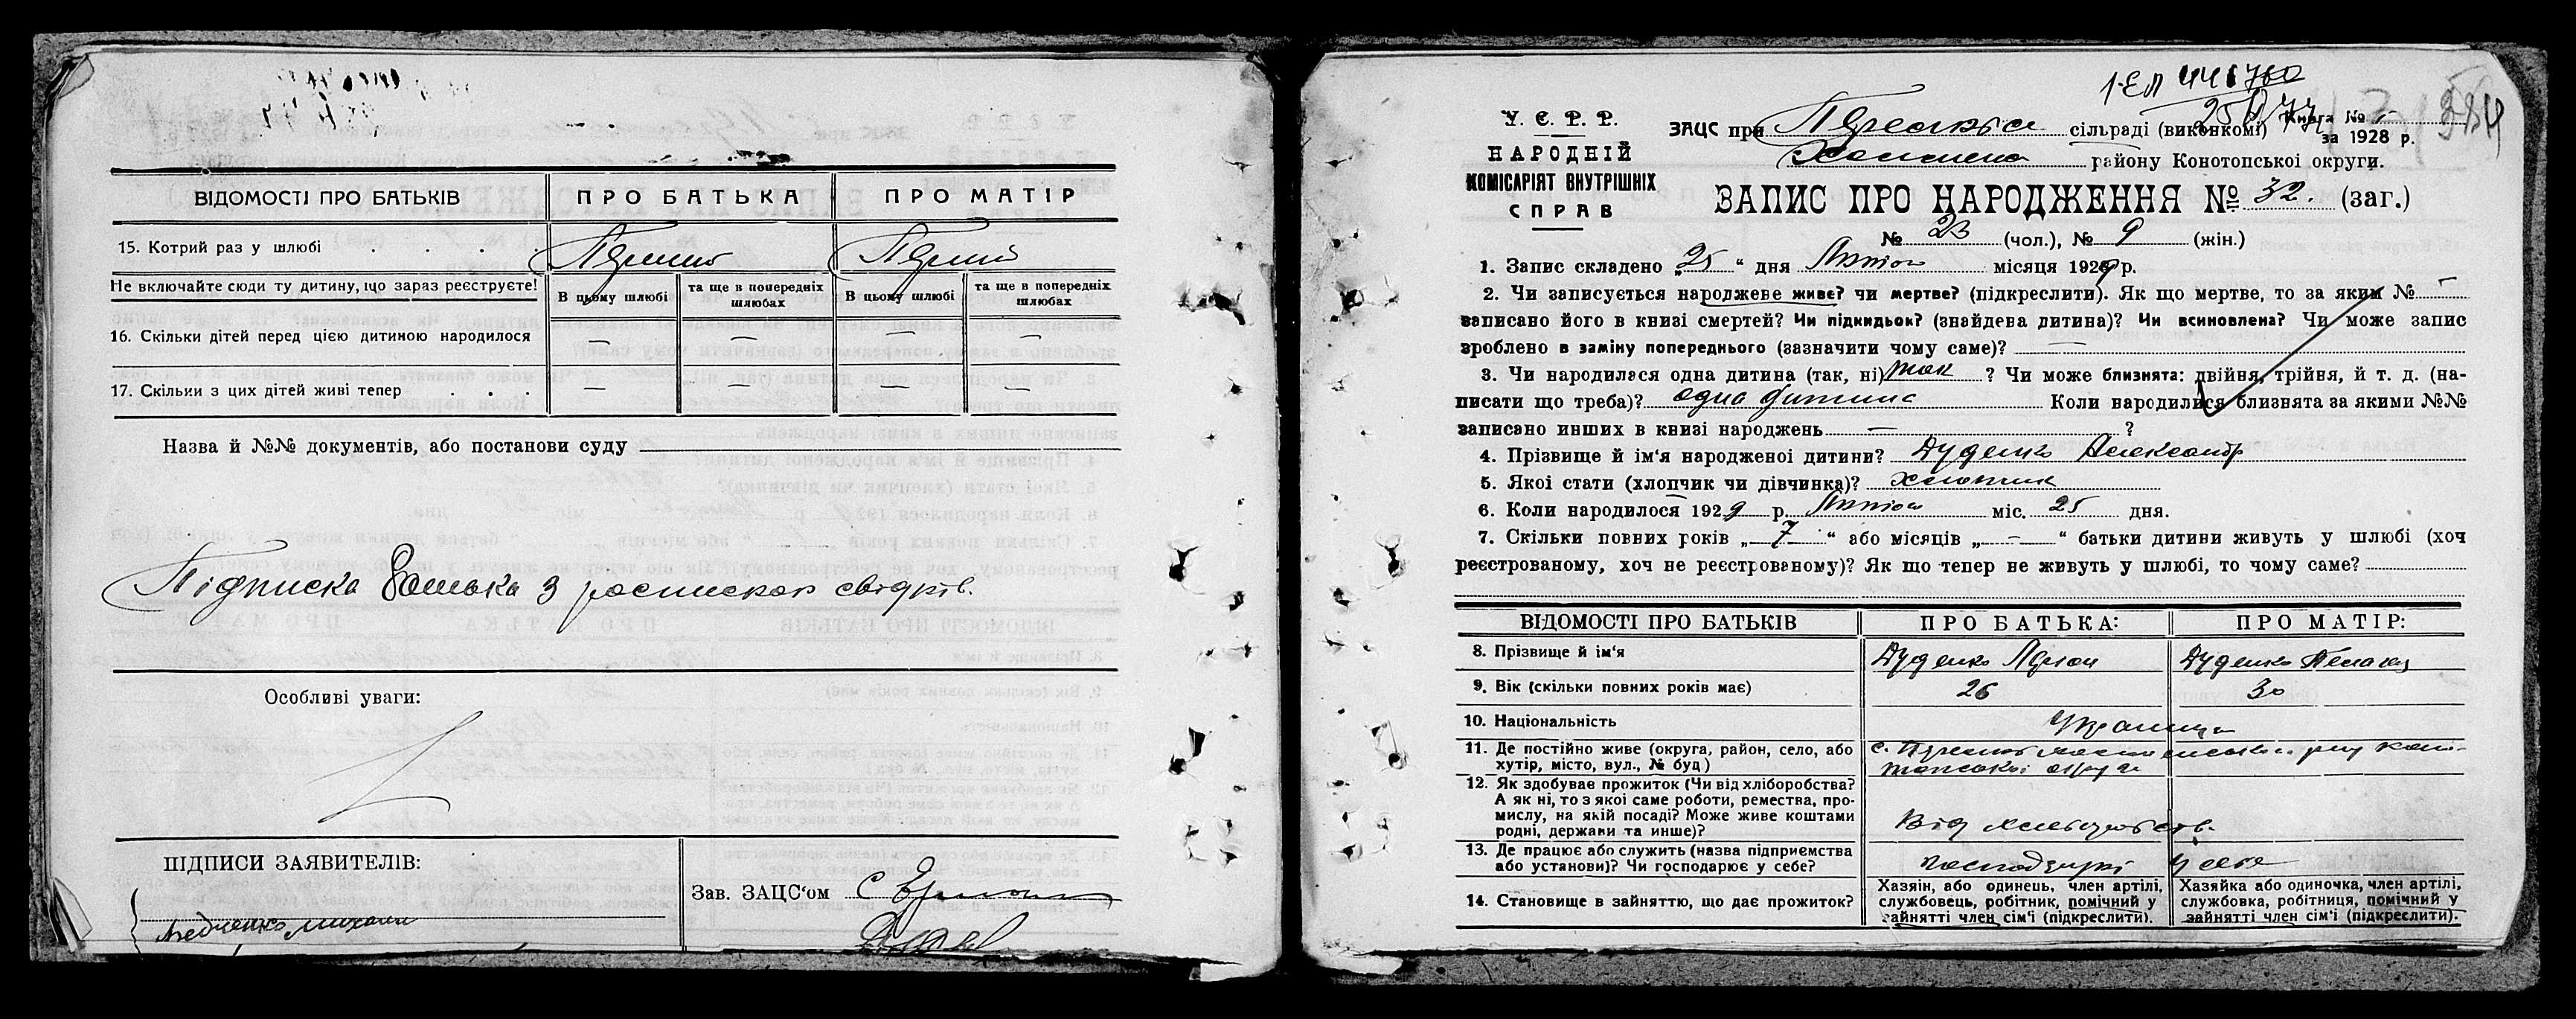 ВІДОМОСТІ ПРО БАТЬКІВ ПРО БАТЬКА ПРО МАТІР
15. Котрий раз у шлюбі . . . .
Не включайте сюди ту дитину, що зараз реєструєте! В цьому шлюбі та ще в попередніх шлюбах В цьому шлюбі та ще в попередніх шлюбах
16. Скільки дітей перед цією дитиною народилося — — — —
17. Скільки з цих дітей живі тепер . . . — — — —
Назва й №№ документів, або постанови суду
Підписка батька з роспискою свідків.
Особливі уваги:
ПІДПИСИ ЗАЯВИТЕЛІВ:
Зав. ЗАЦС'ом
У. С. Р. Р.
НАРОДНІЙ
КОМІСАРІЯТ ВНУТРІШНІХ
СПРАВ
ЗАЦС при сільраді (виконкомі) Книга №
за 1928 р.
району Конотопської округи.
ЗАПИС ПРО НАРОДЖЕННЯ № 32. (заг.)
№ 23 (чол.), № 9 (жін.)
1. Запис складено „25 “ дня місяця 1929 р.
2. Чи записується народжеве живе? чи мертве? (підкреслити). Як що мертве, то за яким № —
записано його в книзі смертей? Чи підкидьок? (знайдена дитина)? Чи всиновлена? Чи може запис
зроблено в заміну попереднього (зазначити чому саме)? —
3. Чи народилася одна дитина (так, ні) так ? Чи може близнята: двійня, трійня, й т. д. (на-
писати що треба)? одна дитина Коли народилися близнята за якими №№
записано инших в книзі народжень — ?
4. Прізвище й ім'я народженої дитини? Дуденко Александр
5. Якої стати (хлопчик чи дівчинка)? Хлопчик
6. Коли народилося 1929 р. міс. 25 дня.
7. Скільки повних років „ 7 “ або місяців „ — “ батьки дитини живуть у шлюбі (хоч
реєстрованому, хоч не реєстрованому)? Як що тепер не живуть у шлюбі, то чому саме?
ВІДОМОСТІ ПРО БАТЬКІВ ПРО БАТЬКА: ПРО МАТІР:
8. Прізвище й ім'я Дуденко Дуденко
9. Вік (скільки повних років має) 26 30
10. Національність
11. Де постійно живе (округа, район, село, або
хутір, місто, вул., № буд)
12. Як здобуває прожиток (Чи від хліборобства?
А як ні, то з якої саме роботи, ремества, про-
мислу, на якій посаді? Може живе коштами
родні, держави та инше)? Від
13. Де працює або служить (назва підприємства
або установи)? Чи господарює у себе? у себе
14. Становище в зайняттю, що дає прожиток?
Хазяін, або одинець, член артілі,
службовець, робітник, помічний у
зайнятті член сім'ї (підкреслити).
Хазяйка або одиночка, член артілі,
службовка, робітниця, помічний у
зайнятті член сім'ї (підкреслити).